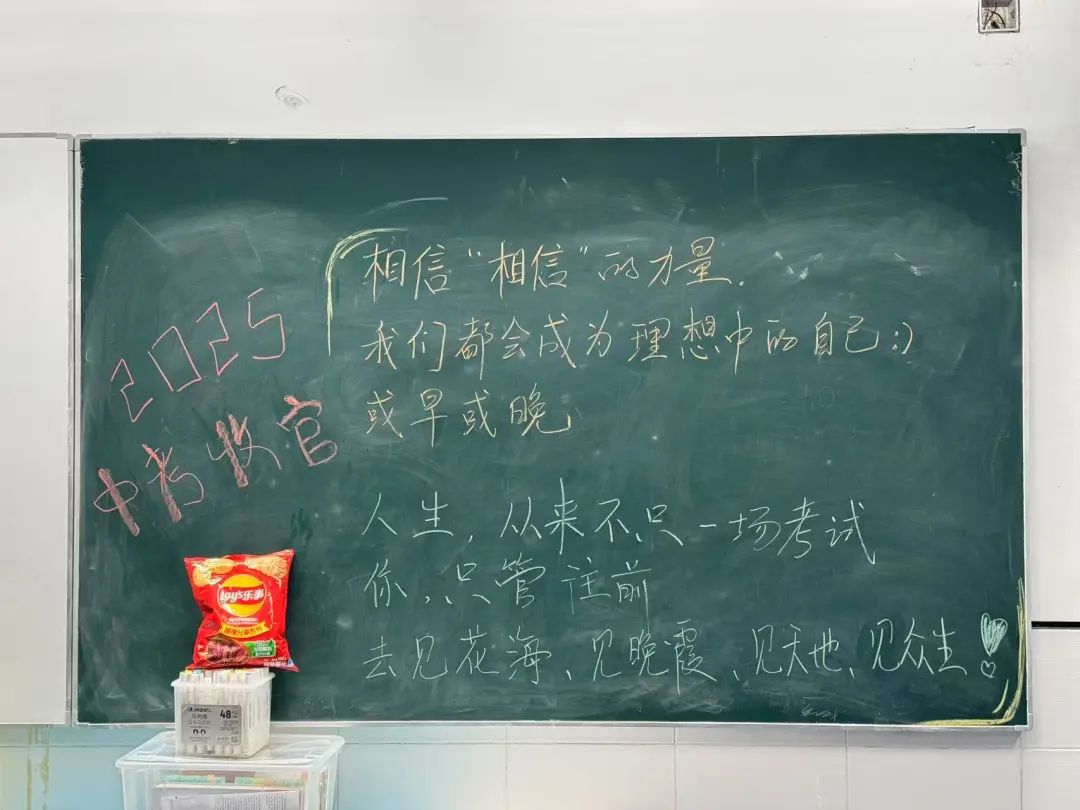 2025
中考收官
相信“相信”的力量.
我们都会成为理想中的自己:)
或早或晚
人生,从来不只一场考试
你,只管往前
去见花海、见晚霞、见天地、见众生!
Lay's乐事
48